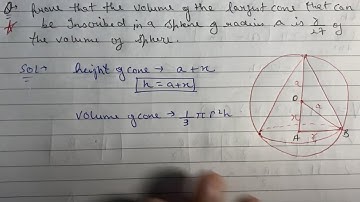 Q prove that the volume of the largest cone that can
be Inscribed in a sphere of radius a is 8/27 of
the volume of sphere.
Sol:
height of cone → a+x
h = a+x
volume of cone → 1/3 π r²h
a
O
a
x
A
r
B